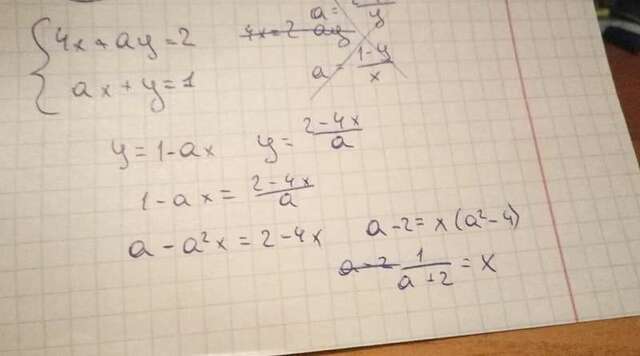 4x + ay = 2
ax + y = 1
4x = 2 - ay
a = y
a = (1-y)/x
y = 1 - ax y = (2-4x)/a
1 - ax = (2-4x)/a
a - a²x = 2 - 4x
a - 2 = x(a² - 4)
a - 2 1/(a+2) = x